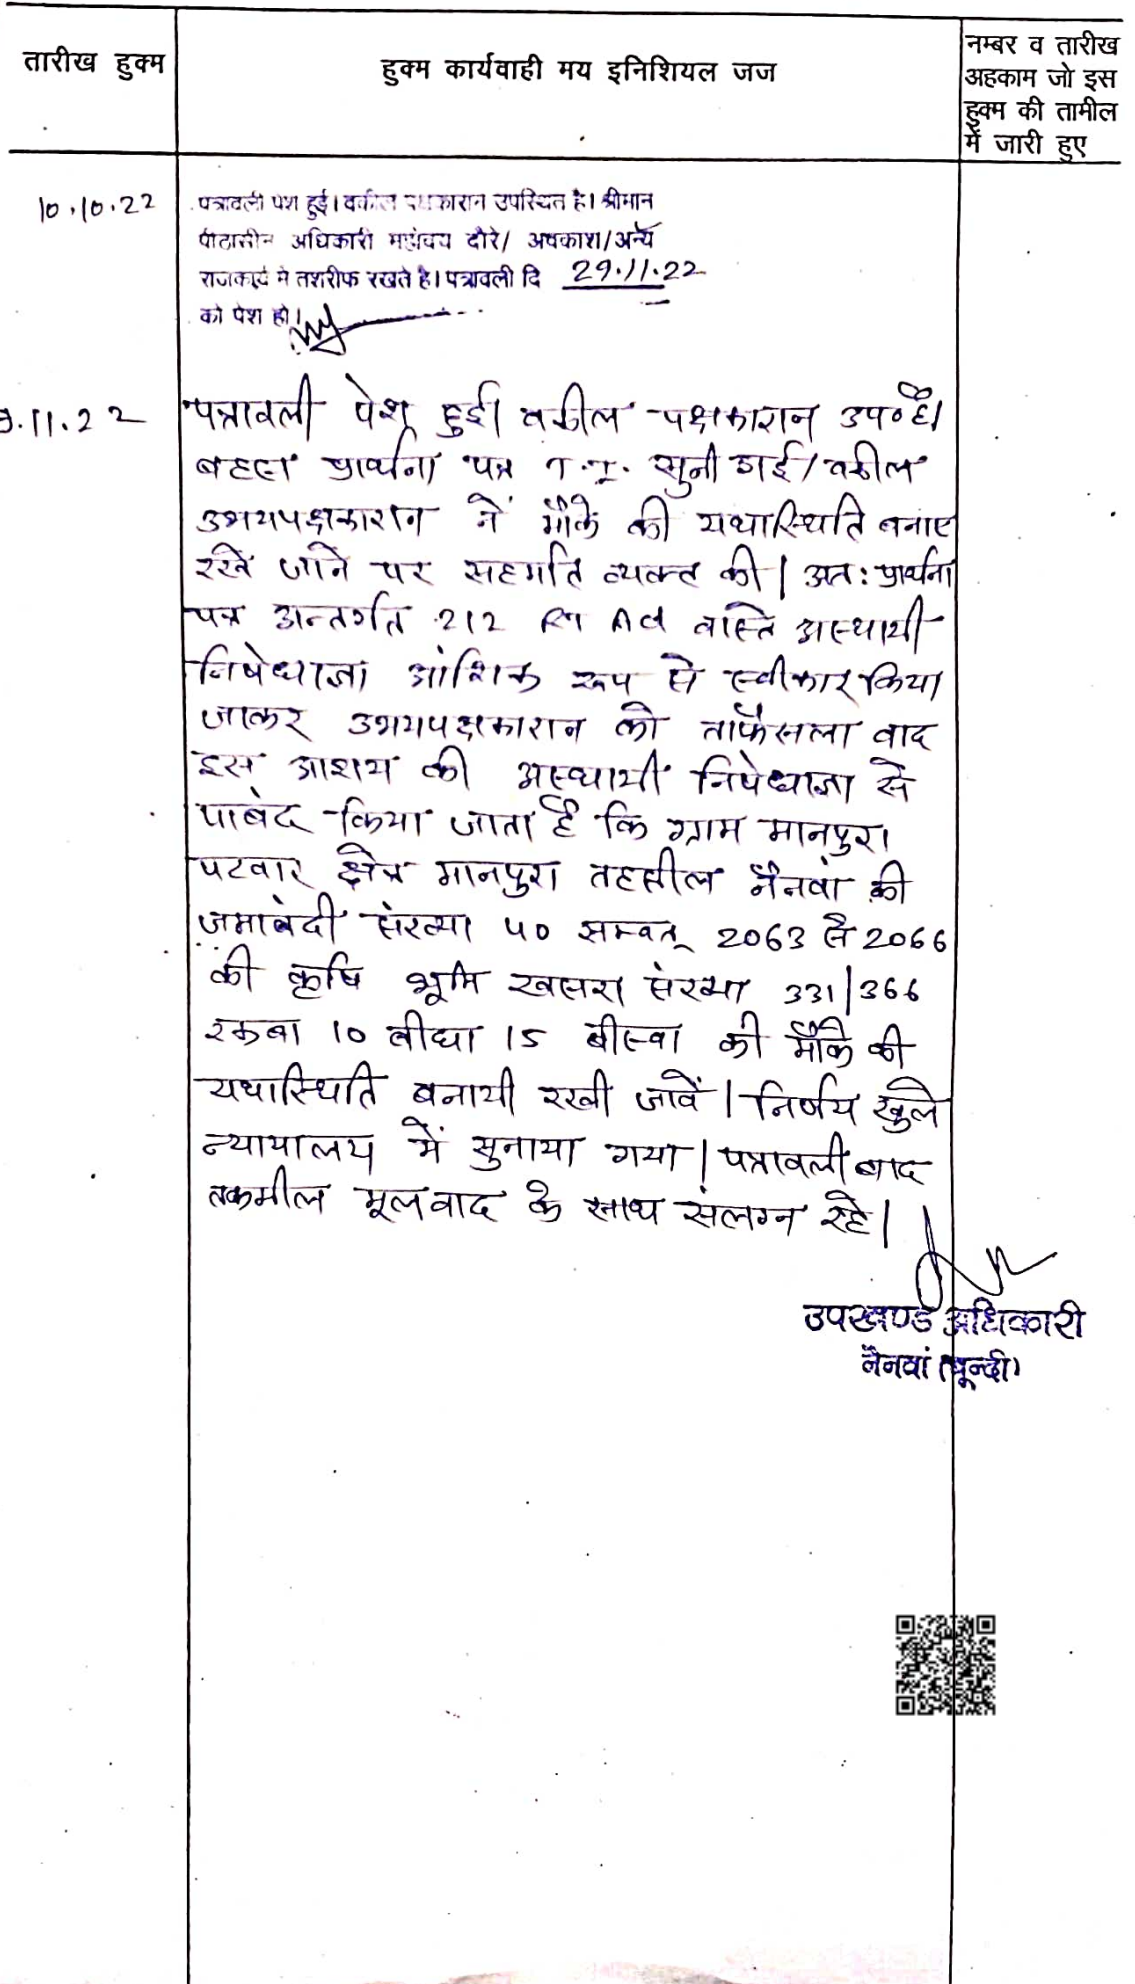 तारीख हुक्म
हुक्म कार्यवाही मय इनिशियल जज
नम्बर व तारीख
अहकाम जो इस
हुक्म की तामील
में जारी हुए
10.10.22
पत्रावली पेश हुई। वकील पक्षकारान उपस्थित है। श्रीमान
पीठासीन अधिकारी महोदय दौरे/ अवकाश/अन्य
राजकार्य मे तशरीफ रखते है। पत्रावली दि 29.11.22
को पेश हो।
9.11.22
पत्रावली पेश हुई। वकील पक्षकारान उप० है।
बहस प्रार्थना पत्र T.I. सुनी गई। वकील
उभयपक्षकारान ने मौके की यथास्थिति बनाए
रखे जाने पर सहमति व्यक्त की। अतः प्रार्थना
पत्र अन्तर्गत 212 RT Act वास्ते अस्थायी
निषेधाज्ञा आंशिक रूप से स्वीकार किया
जाकर उभयपक्षकारान को ताफैसला वाद
इस आशय की अस्थायी निषेधाज्ञा से
पाबंद किया जाता है कि ग्राम मानपुरा
पटवार क्षेत्र मानपुरा तहसील नैनवां की
जमाबंदी संख्या 40 सम्वत् 2063 से 2066
की कृषि भूमि खसरा संख्या 331/366
रकबा 10 बीघा 15 बीस्वा की मौके की
यथास्थिति बनायी रखी जावें। निर्णय खुले
न्यायालय में सुनाया गया। पत्रावली बाद
तकमील मूलवाद के साथ संलग्न रहे।
उपखण्ड अधिकारी
नैनवां (बून्दी)